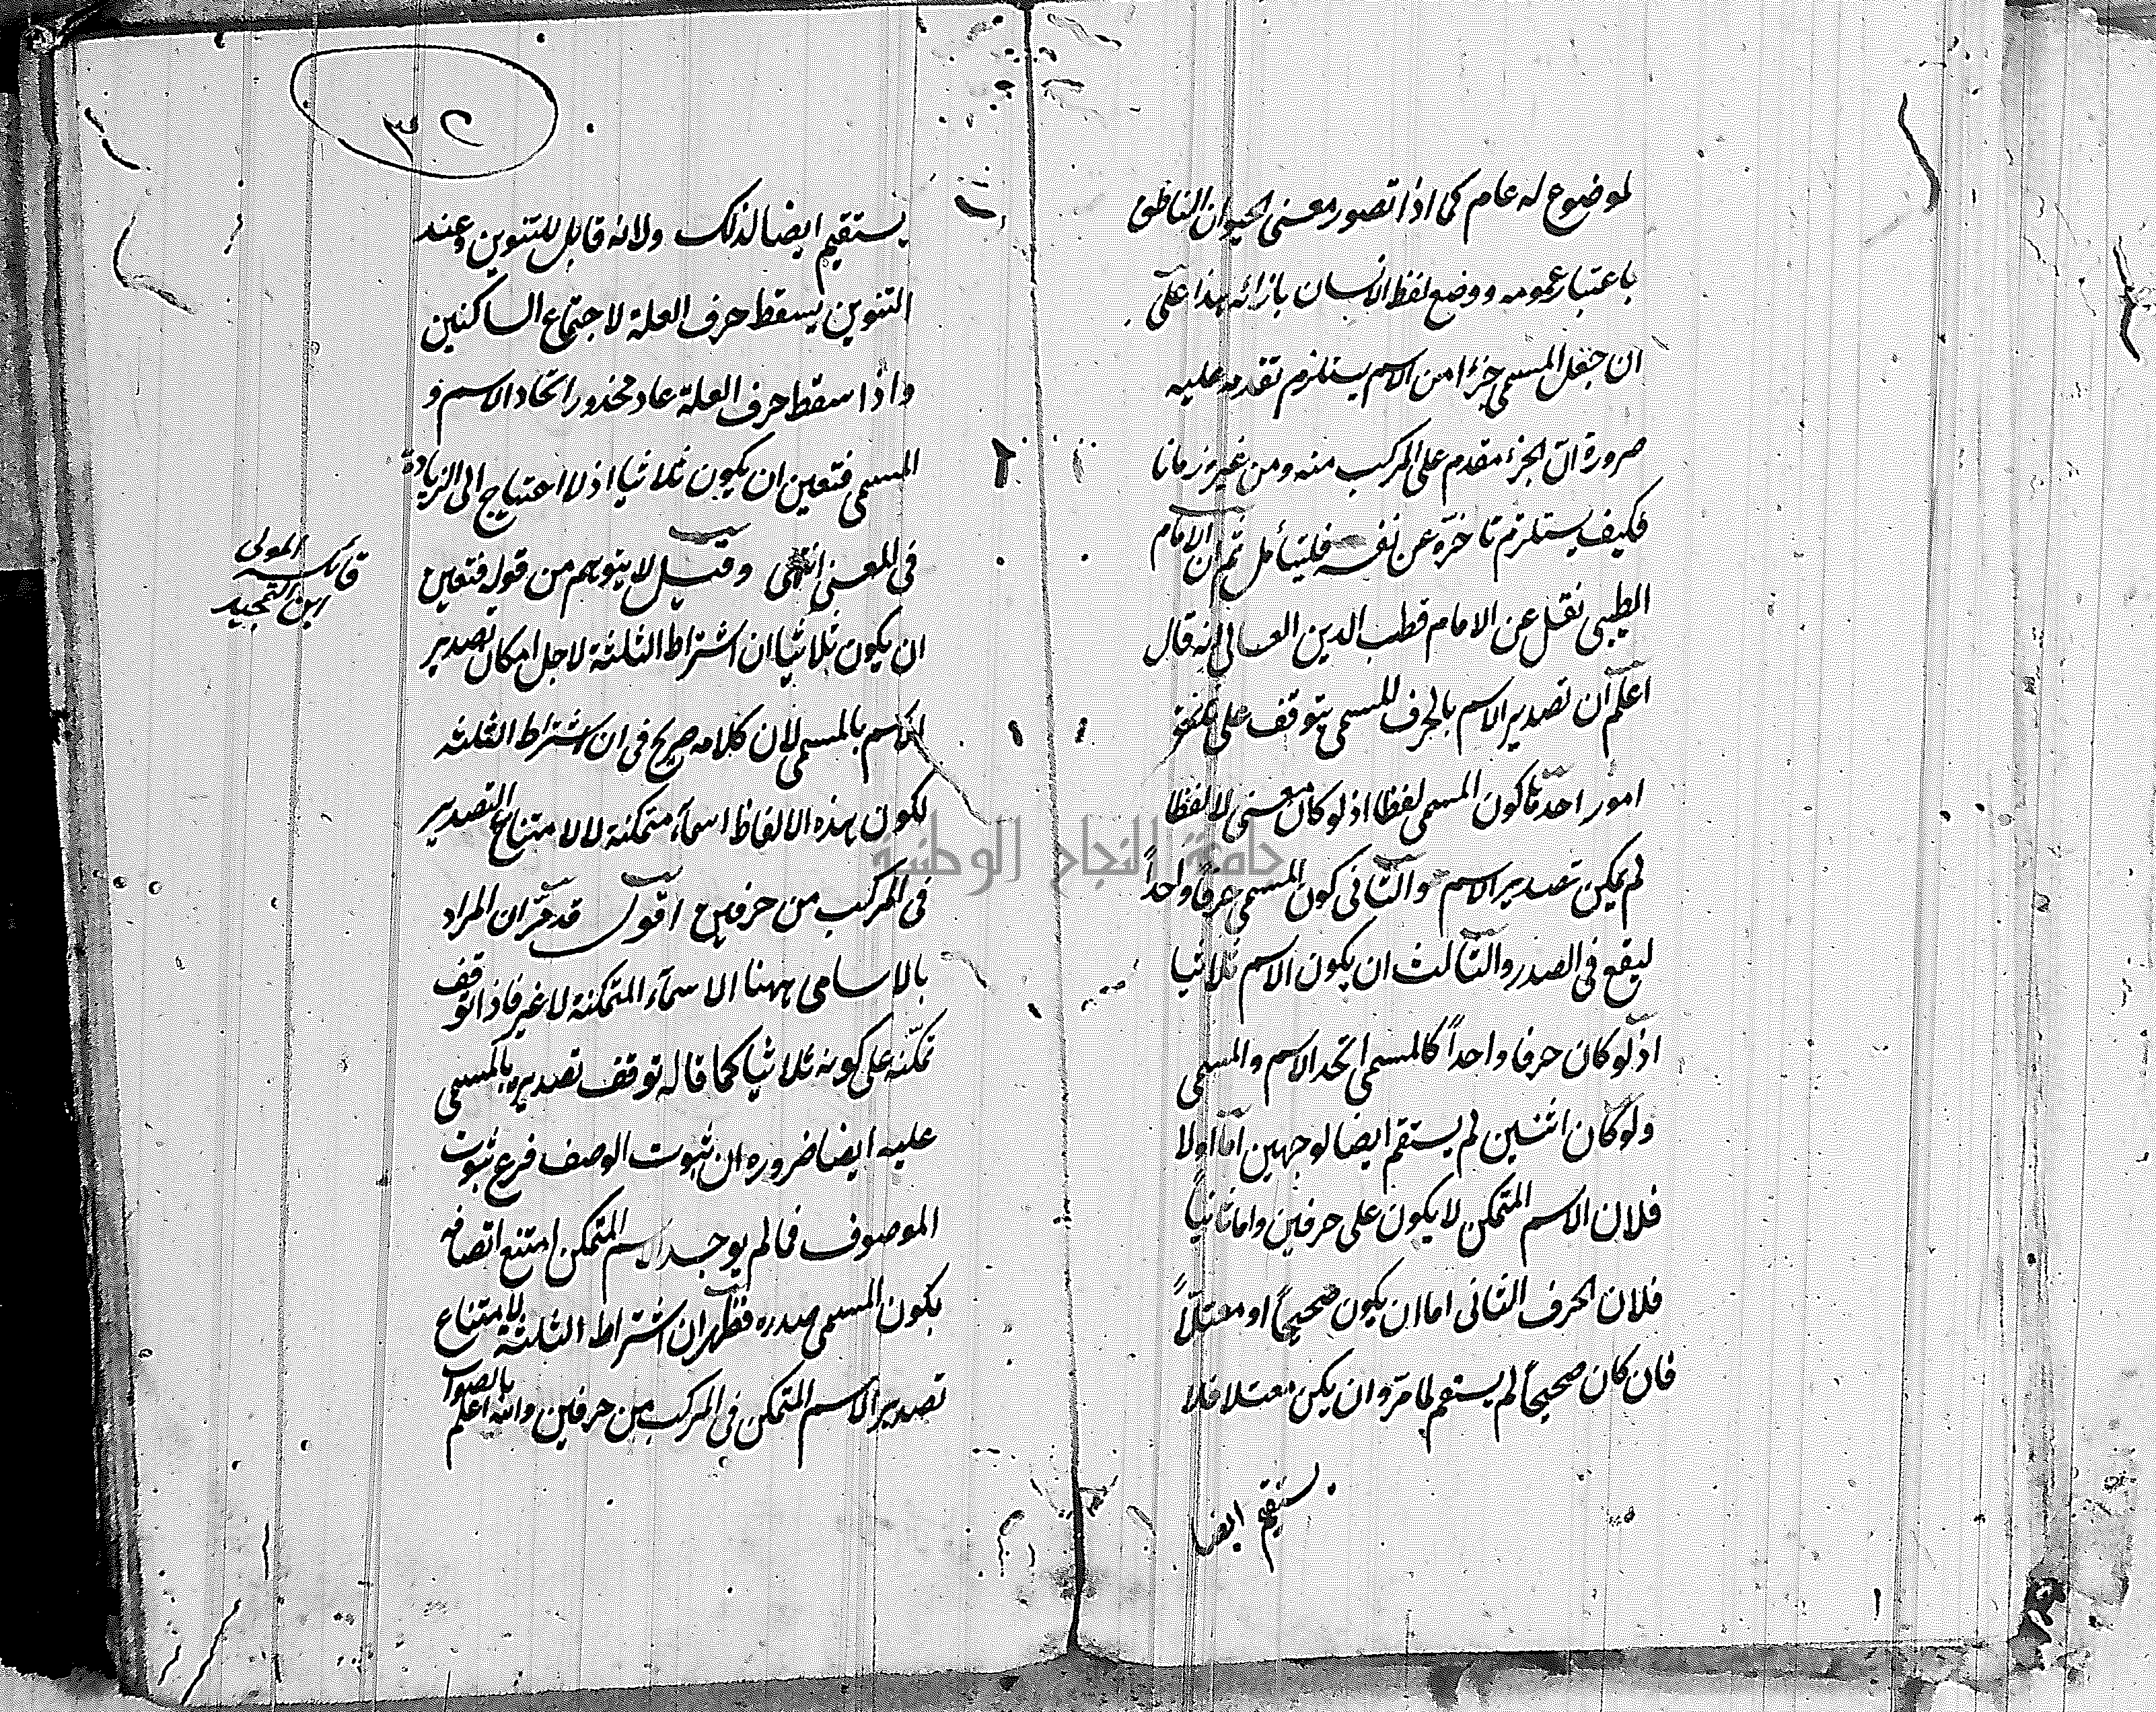 لموضوع له عام كما اذا تصور معنى الحيوان الناطق
باعتبار عمومه ووضع لفظ الانسان بازائه هذا على
ان جعل المسمى جزءا من الاسم يستلزم تقدمه عليه
ضرورة ان الجزء مقدم على المركب منه ومن غيره زمانا
فكيف يستلزم تاخره عن نفسه فليتأمل ثم ان الامام
الطيبى نقل عن الامام قطب الدين العالى انه قال
اعلم ان تصدير الاسم بالحرف المسمى يتوقف على
امور احدها كون المسمى لفظا اذ لو كان معنى لا لفظا
لم يمكن تصدير الاسم والثانى كون المسمى حرفا واحداً
ليقع فى الصدر والثالث ان يكون الاسم ثلاثيا
اذ لو كان حرفا واحداً كالمسمى اتحد الاسم والمسمى
ولو كان اثنين لم يستقم ايضا لوجهين اما اولا
فلان الاسم المتمكن لا يكون على حرفين واما ثانياً
فلان الحرف الثانى اما ان يكون صحيحاً او معتلاً
فان كان صحيحاً لم يستقم لما مرّ وان يكن معتلا فلا
يستقيم ايضا
٣٢
يستقيم ايضا لذلك ولانه قابل للتنوين وعند
التنوين يسقط حرف العلة لاجتماع الساكنين
واذا سقط حرف العلة عاد محذور اتحاد الاسم و
المسمى فتعين ان يكون ثلاثيا اذ لا احتياج الى الزيادة
فى المعنى انتهى وقيل لا يتوهم من قوله فتعين
ان يكون ثلاثيا ان اشتراط الثلثة لاجل امكان تصدير
الاسم بالمسمى لان كلامه صريح فى ان اشتراط الثلثة
لكون هذه الالفاظ اسماء متمكنة لا لامتناع التصدير
فى المركب من حرفين اقول قد مرّ ان المراد
بالاسامى ههنا الاسماء المتمكنة لا غير فاذا توقف
تمكنه على كونه ثلاثيا كما قاله توقف تصديره بالمسمى
عليه ايضا ضرورة ان ثبوت الوصف فرع ثبوت
الموصوف فما لم يوجد الاسم المتمكن امتنع اتصافه
بكون المسمى صدره فظهر ان اشتراط الثلثة لامتناع
تصدير الاسم المتمكن فى المركب من حرفين والله اعلم
بالصواب
قائله المولى
ابن التمجيد
جامعة النجاح الوطنية